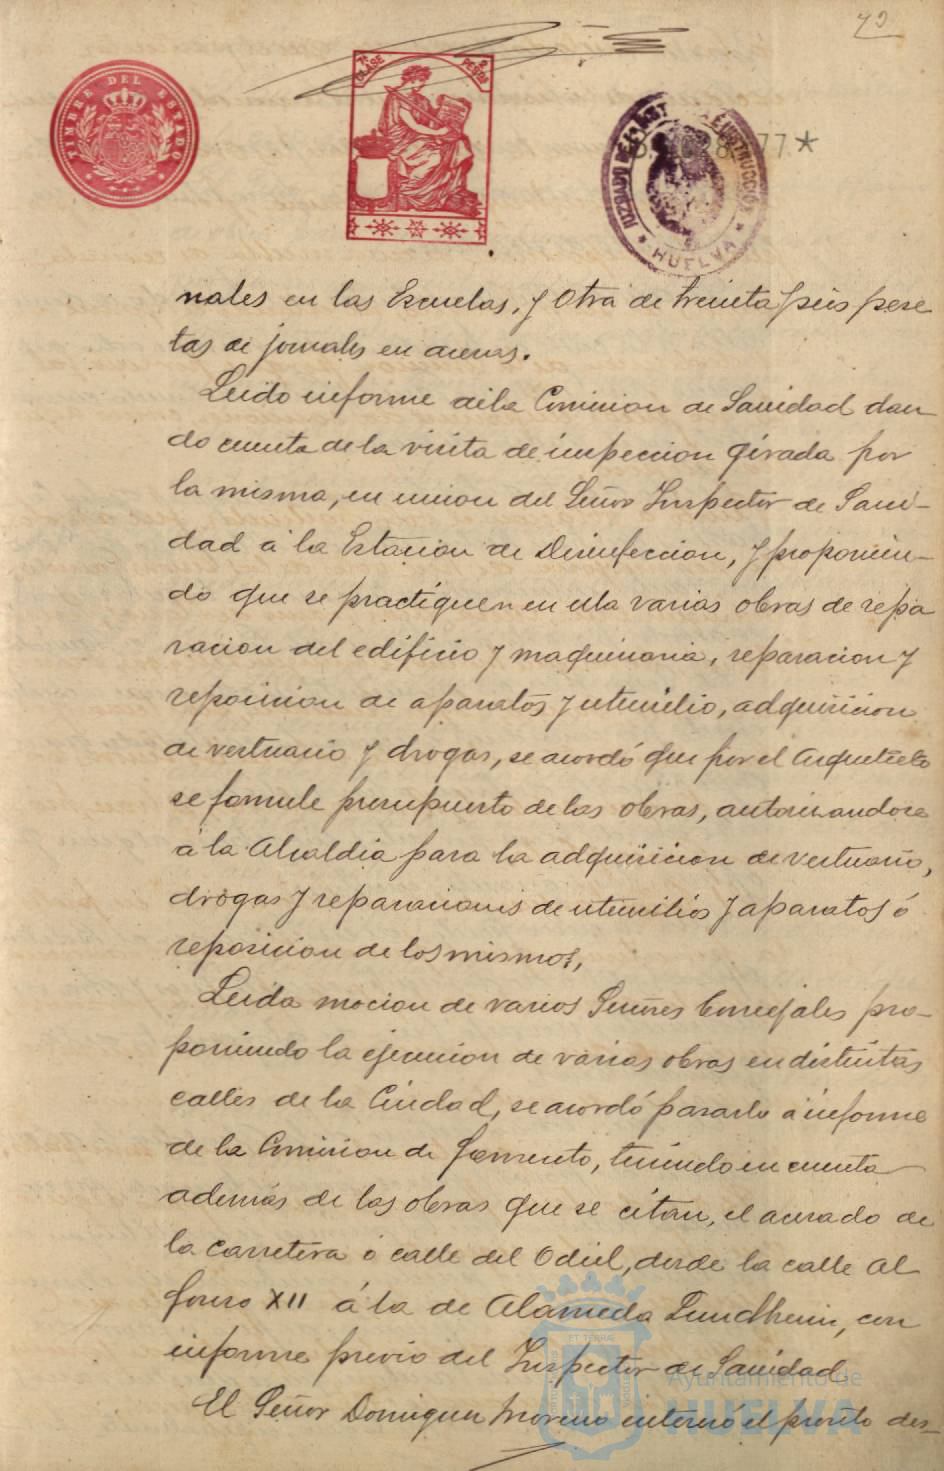 72
TIMBRE DEL ESTADO
7ª CLASE
PESETAS
JUZGADO DE INSTRUCCIÓN
* HUELVA *
77*
nales en las Escuelas, y otra de treinta y seis pese
tas de jornales en aceras.
Leido informe de la Comision de Sanidad dan
do cuenta de la visita de inspeccion girada por
la misma, en union del Señor Inspector de Sani-
dad á la Estacion de Desinfeccion, y proponien-
do que se practiquen en ella varias obras de repa
racion del edificio y maquinaria, reparacion y
reposicion de aparatos y utensilio, adquisicion
de vestuario y drogas, se acordó que por el Arquitecto
se formule presupuesto de las obras, autorizandose
á la Alcaldia para la adquisicion de vestuario,
drogas y reparaciones de utensilios y aparatos ó
reposicion de los mismos,
Leida mocion de varios Señores Concejales pro-
poniendo la ejecucion de varias obras en distintas
calles de la Ciudad, se acordó pasarla á informe
de la Comision de Fomento, teniendo en cuenta
además de las obras que se citan, el acerado de
la carretera ó calle del Odiel, desde la calle Al
fonso XII á la de Alameda Sundheim, con
informe previo del Inspector de Sanidad
El Señor Dominguez Moreno interesó el pronto des-
ET TERRÆ
Ayuntamiento de
HUELVA